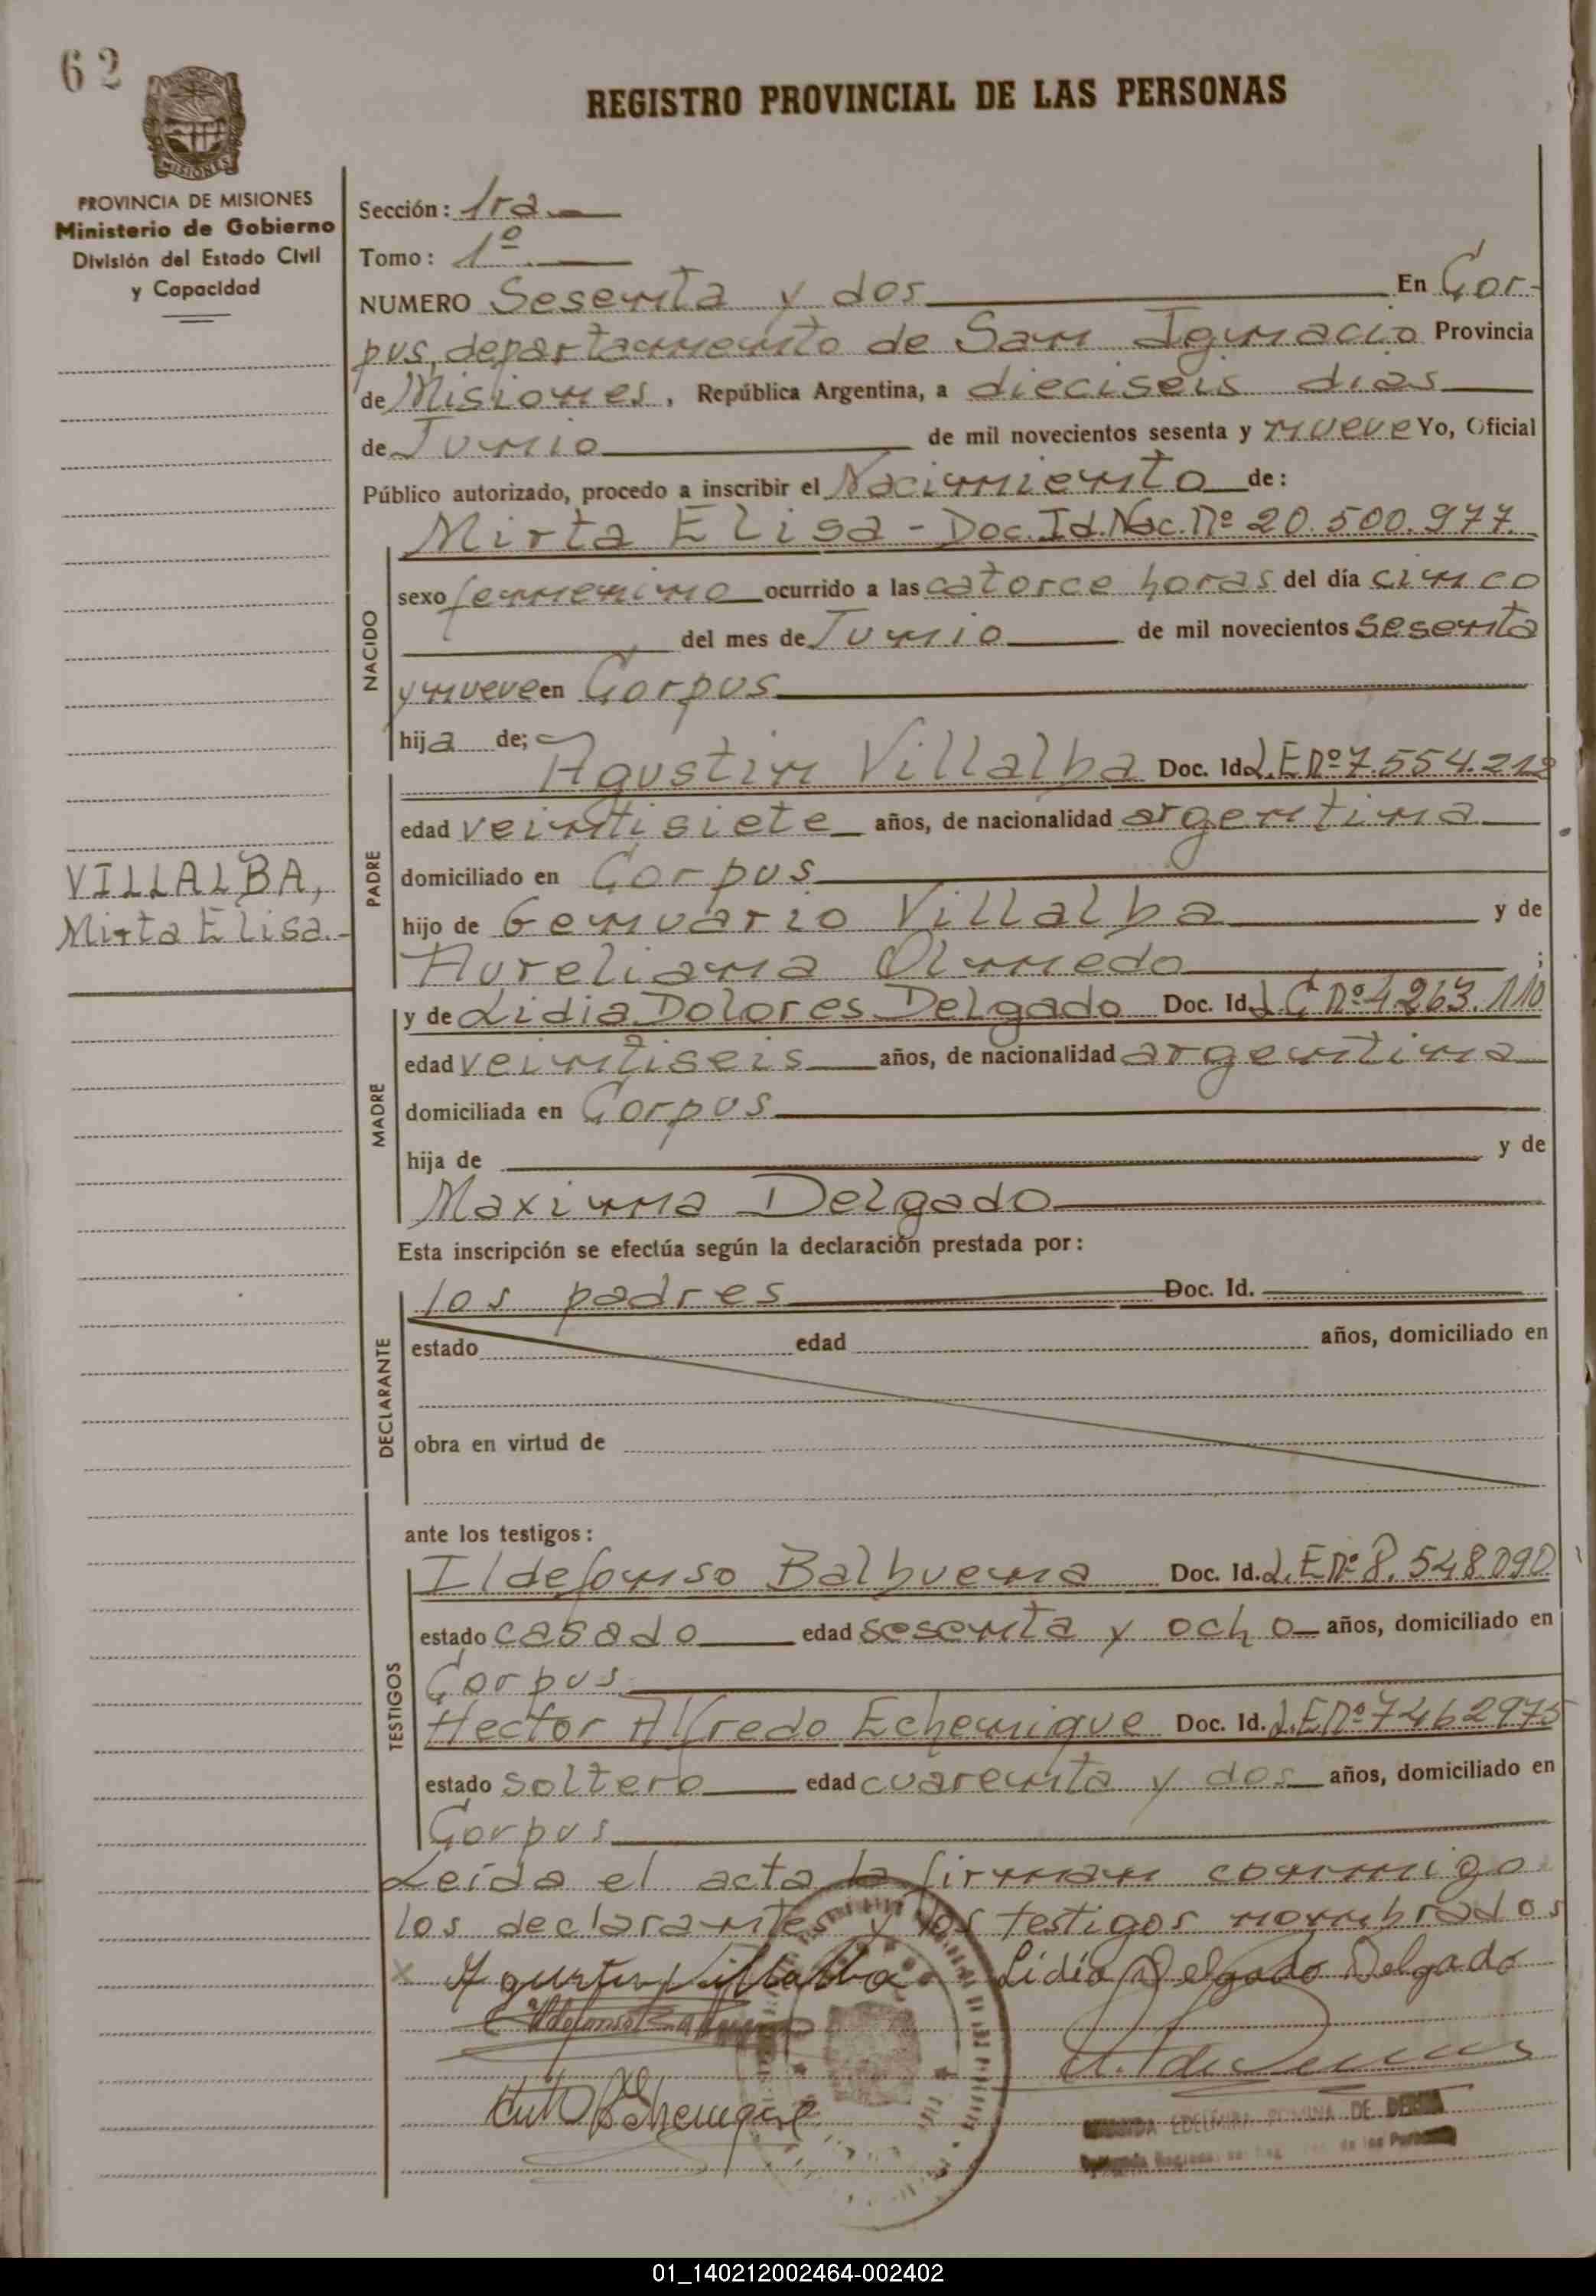 62
REGISTRO PROVINCIAL DE LAS PERSONAS
MISIONES
PROVINCIA DE MISIONES
Ministerio de Gobierno
División del Estado Civil
y Capacidad
Sección: 1ra.
Tomo: 1º
NUMERO Sesenta y dos En Cor-
pus, departamento de San Ignacio Provincia
de Misiones, República Argentina, a dieciseis dias
de Junio de mil novecientos sesenta y nueve Yo, Oficial
Público autorizado, procedo a inscribir el Nacimiento de:
Mirta Elisa - Doc. Id. Nac. nº 20.500.977.
NACIDO
sexo femenino ocurrido a las catorce horas del día cinco
del mes de Junio de mil novecientos sesenta
y nueve en Corpus
hija de;
PADRE
Agustin Villalba Doc. Id. L.E nº 7.554.218
edad veintisiete años, de nacionalidad argentina
domiciliado en Corpus
VILLALBA,
Mirta Elisa.-
hijo de Genuario Villalba y de
Aureliana Olmedo ;
MADRE
y de Lidia Dolores Delgado Doc. Id. L C nº 4.263.110
edad veintiseis años, de nacionalidad argentina
domiciliada en Corpus
hija de y de
Maxima Delgado
Esta inscripción se efectúa según la declaración prestada por:
DECLARANTE
los padres Doc. Id.
estado edad años, domiciliado en
obra en virtud de
ante los testigos:
TESTIGOS
Ildefonso Balbuena Doc. Id. L.E nº 8.548.090
estado casado edad sesenta y ocho años, domiciliado en
Corpus
Hector Alfredo Echenique Doc. Id. L.E nº 7462975
estado soltero edad cuarenta y dos años, domiciliado en
Corpus
Leída el acta la firman conmigo
los declarantes y los testigos nombrados
x Agustin Villalba Lidia Delgado Delgado
Ildefonso Balbuena
Echenique
EDELMIRA ROMINA DE
de las Personas
01_140212002464-002402